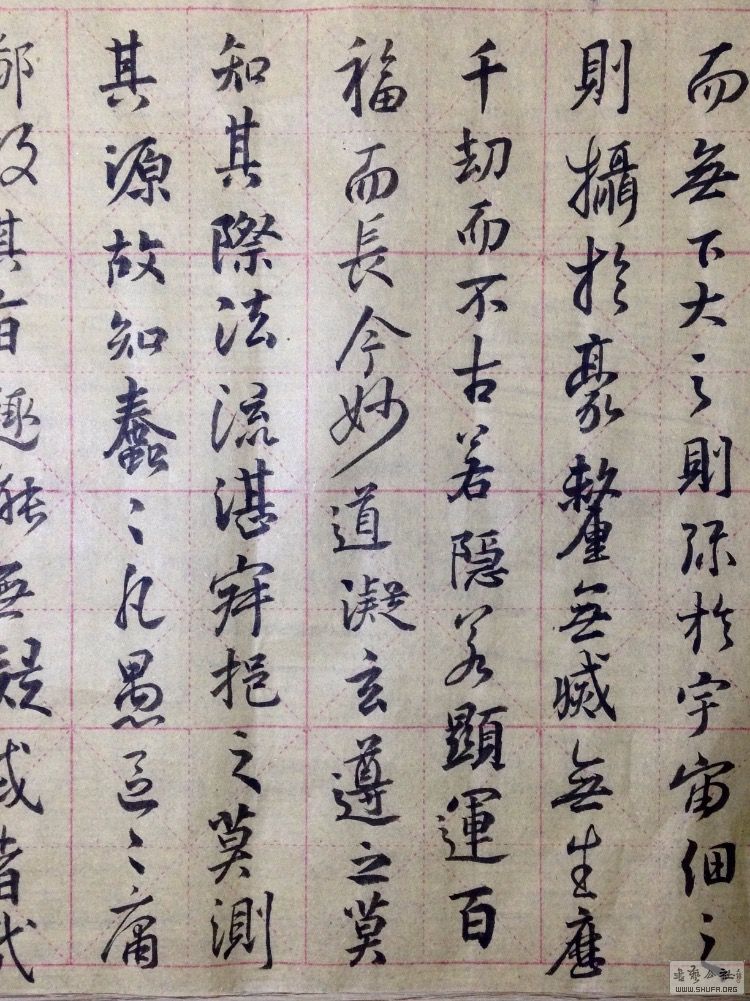 而無下大之則弥於宇宙細之
則攝於豪釐無滅無生歷
千劫而不古若隱若顯運百
福而長今妙道凝玄遵之莫
知其際法流湛寂挹之莫測
其源故知蠢々凡愚區々庸
鄙投其旨趣能無疑惑者哉
WWW.SHUFA.ORG